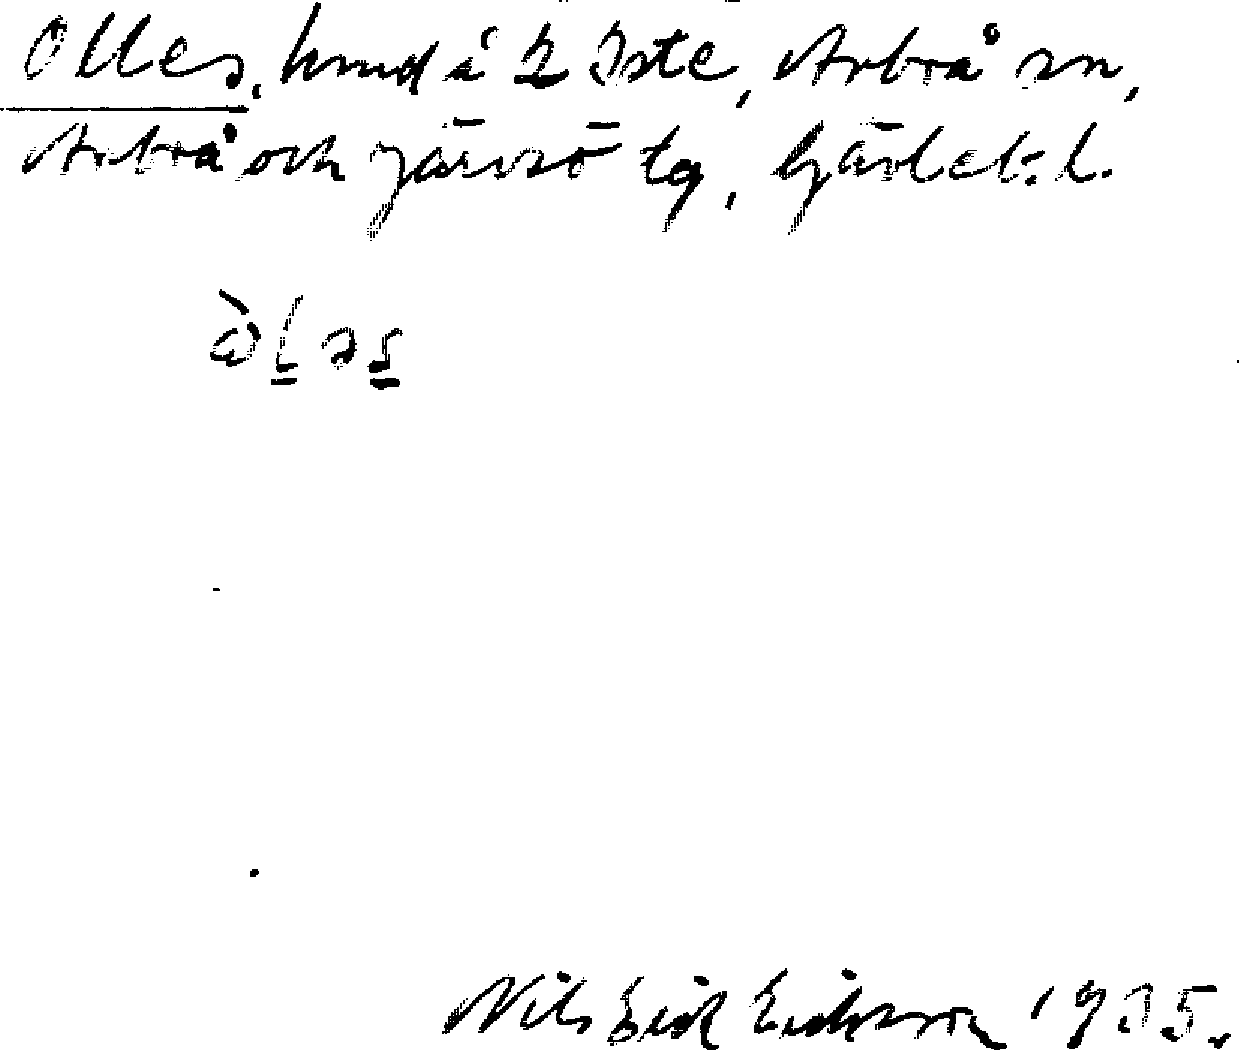 Olles, hmd å 2 Iste, Arbrå sn,
Arbrå och Järvsö tg, Gävleb. l.
Nils Erik Eriksson 1935.